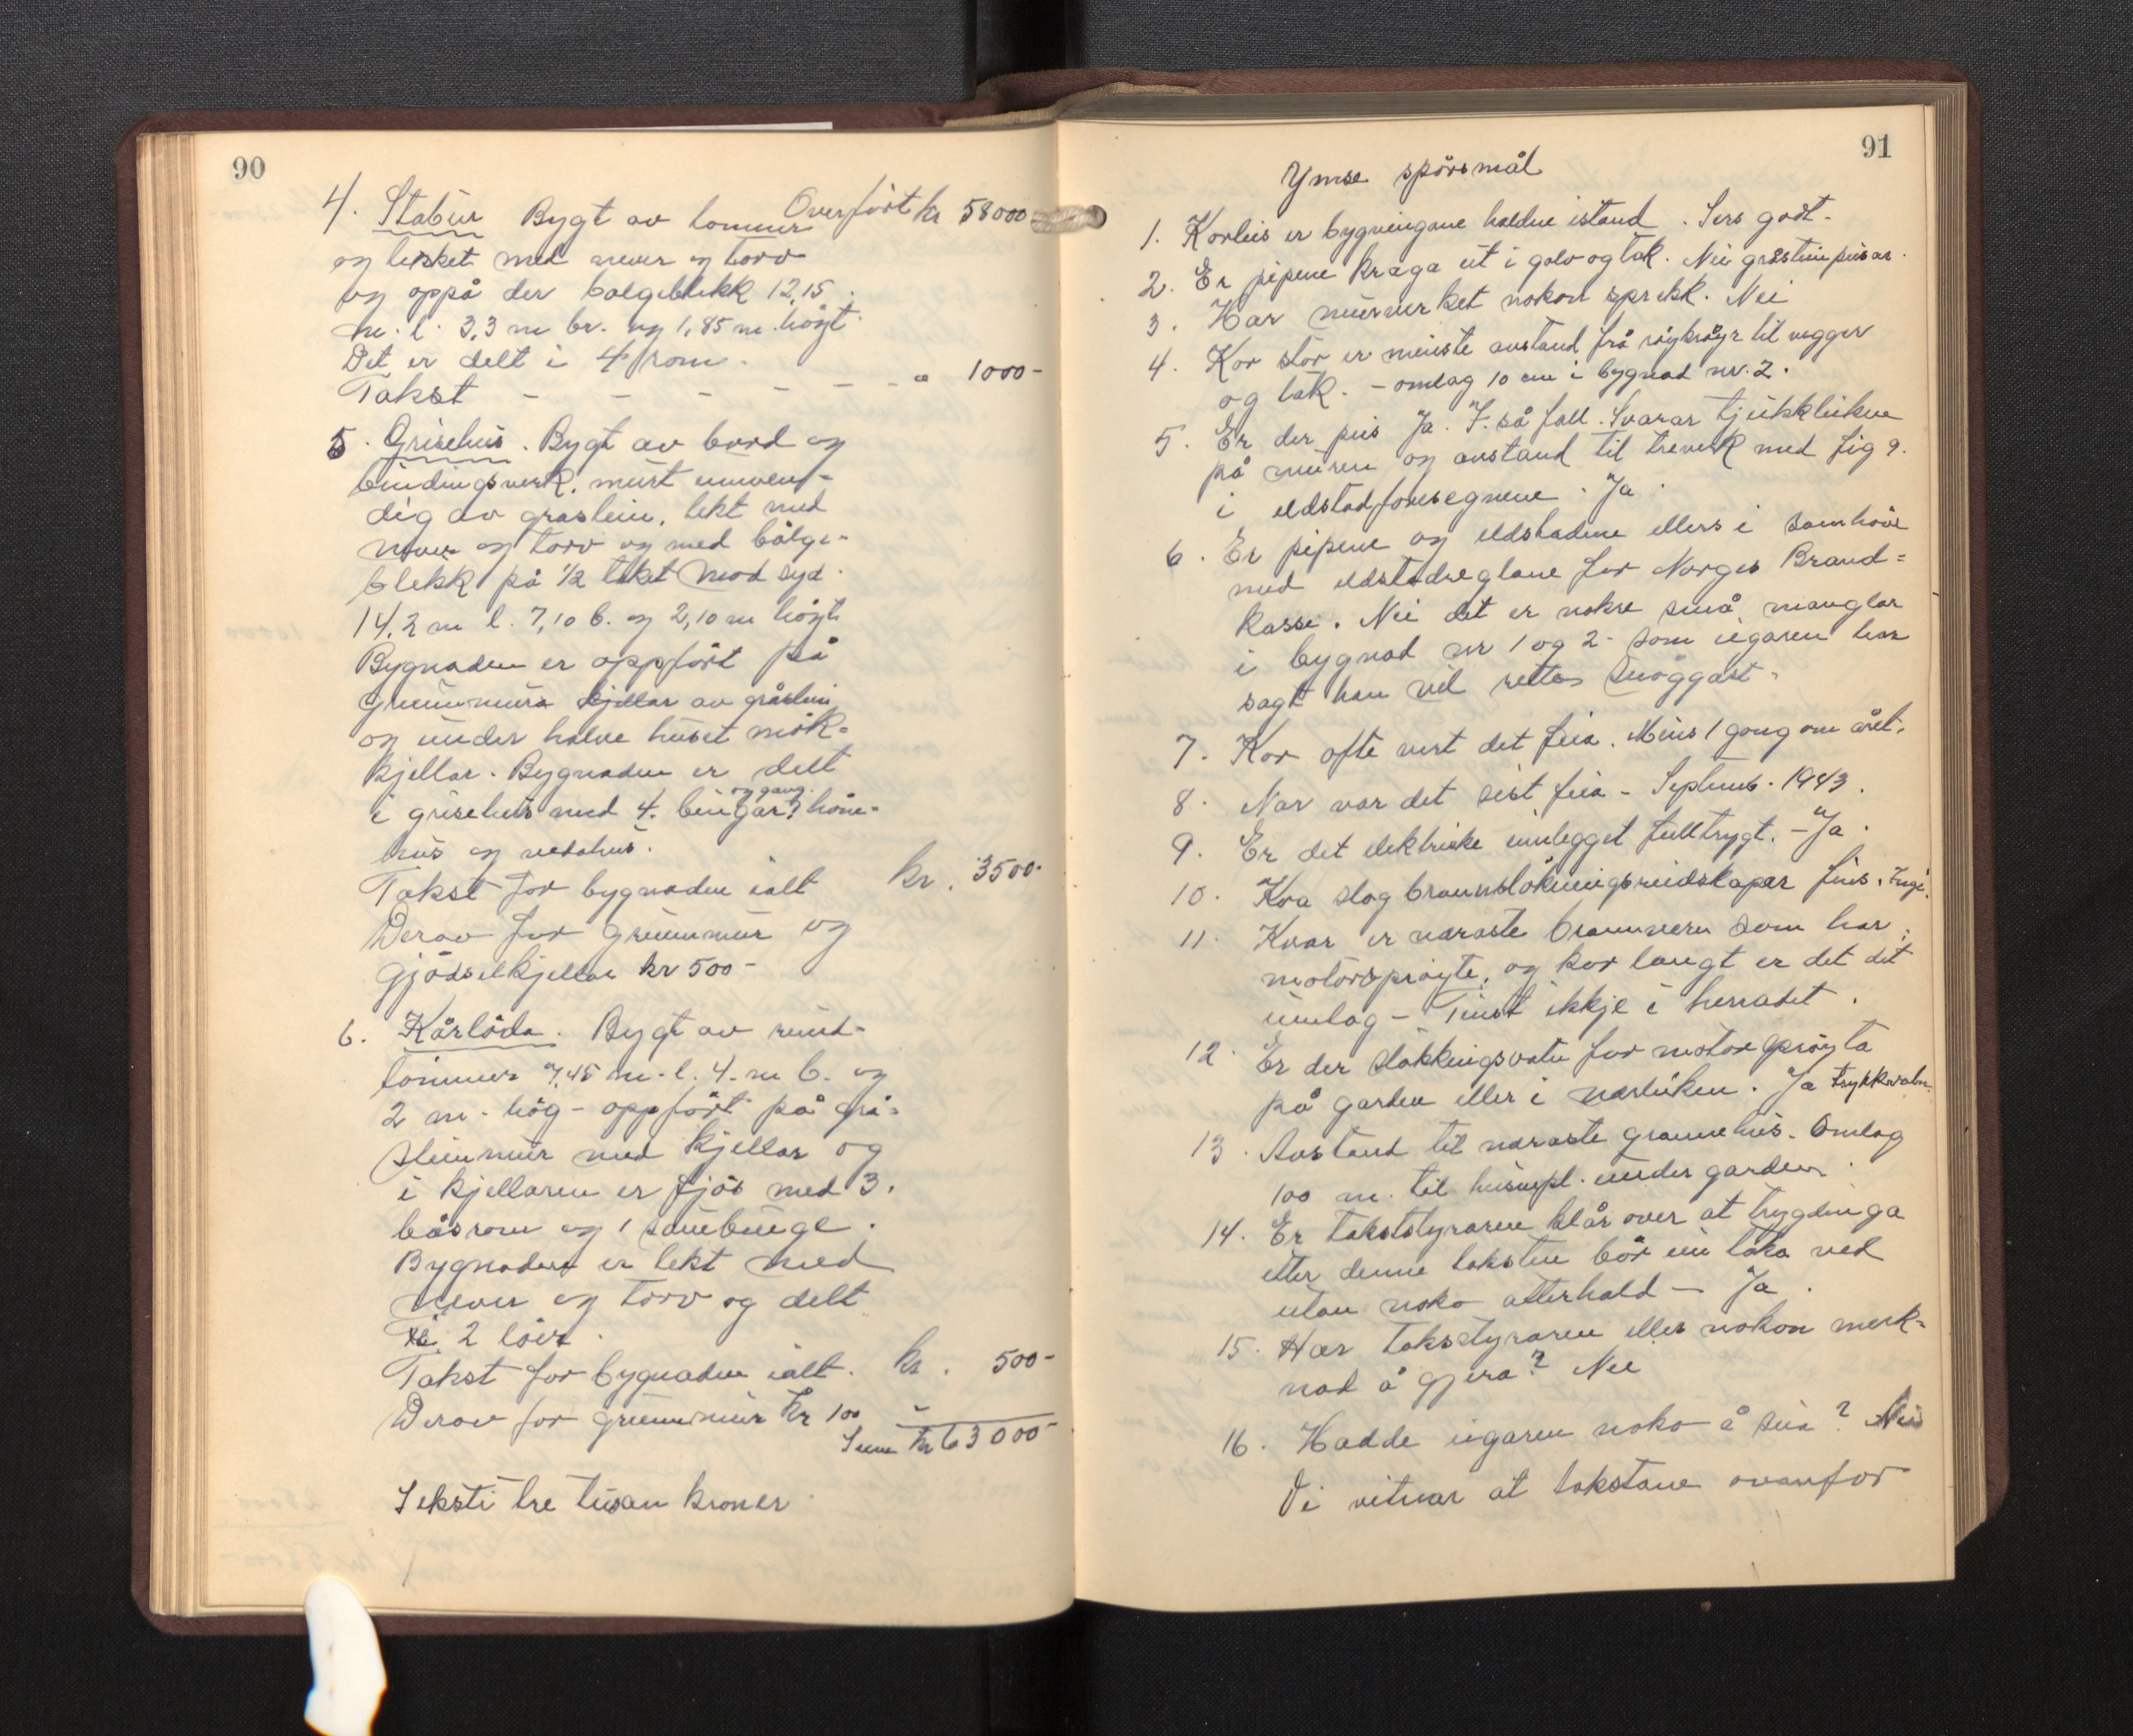 90
Overført kr 58000
4. Stabur Bygt av tømmer
og tekket med never og torv
og oppå der bølgeblekk 12,15
m. l. 3,3 m br. og 1,85 m. högt.
Det er delt i 4 rom.
Takst - - - - - " 1000-
5. Grisehus. Bygt av bord og
bindingsverk, murt innven-
dig av gråstein, tekt med
never og torv og med bölge-
blekk på 1/2 taket mod syd.
14,2 m l. 7,10 b. og 2,10 m högt
Bygnaden er oppfört på
grunnmura kjellar av gråstein
og under halve huset mök-
kjellar. Bygnaden er delt
og gang.
i grisehus med 4. bingar, höne-
hus og vedahus.
Takst for bygnaden ialt kr. 3500-
Derav for grunnmur og
gjödselkjellar kr 500-
6. Kårlöda. Bygt av rund-
tömmer 7,45 m. l. 4. m b. og
2 m. hög - oppfört på grå-
steinmur med kjellar og
i kjellaren er fjös med 3.
båsrom og 1 saubinge.
Bygnaden er tekt med
never og torv og delt
i 2 löer.
Takst for bygnaden ialt. kr. 500-
Derav for grunnmur kr 100 -
Sum kr 63000-
Seksti tre tusan kroner.
91
Ymse spörsmål
1. Korleis er bygningane haldne istand. Sers godt.
2. Er pipene kraga ut i golv og tak. Nei gråsteinpeisar.
3. Har murverket nokon sprekk. Nei
4. Kor stor er minste avstand frå röykröyr til vegger
og tak. - omlag 10 cm i bygnad nr. 2.
5. Er der peis Ja. I så fall. Svarar tjukkleiken
på muren og avstand til treverk med fig 9.
i eldstadforesegnene. Ja.
6. Er pipene og eldstadene ellers i samhöve
med eldstadreglane for Norges Brand-
kasse. Nei det er nokre små manglar
i bygnad nr 1 og 2 - som eigaren har
sagt han vil retta snöggast.
7. Kor ofte vert det feia. Minst 1 gong om året.
8. Nar var det sist feia - Septemb. 1943.
9. Er det elektriske innlegget fulltrygt. - Ja.
10. Kva slag brannslökningsreidskaper fins. Ingi.
11. Kvar er næraste brannvern som har
motorspröyte, og kor langt er det dit
umlag - Finst ikkje i herradet.
12. Er der slökkingsvatn for motorspröyta
på garden eller i nærleiken. Ja trykkvatn.
13. Avstand til næraste grannehus. Omlag
100 m. til husmpl. under garden.
14. Er takststyraren klår over at trygdinga
etter denne taksten bör ein taka ved
utan noko atterhald - Ja.
15. Har takststyraren elles nokon merk-
nad å gjera? Nei
16. Hadde eigaren noko å seia? Nei
Vi vitnar at takstane ovanfor